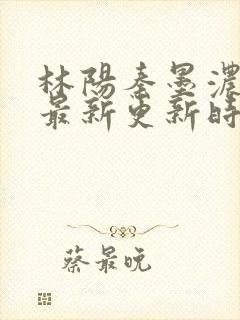 林陽秦墨濃
最新更新時
蔡最晚